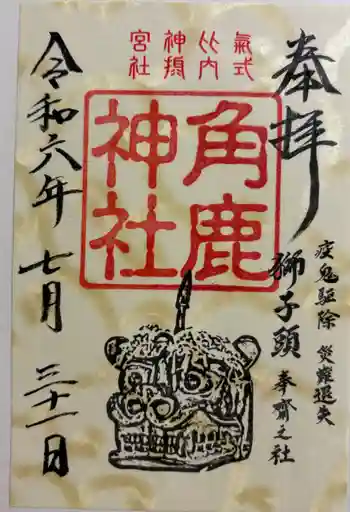 奉拝
疫鬼駆除 災癘退失
獅子頭
奉齋之社
氣式
比内
神拐
宮社
角鹿
神社
令和六年 七月 三十一日